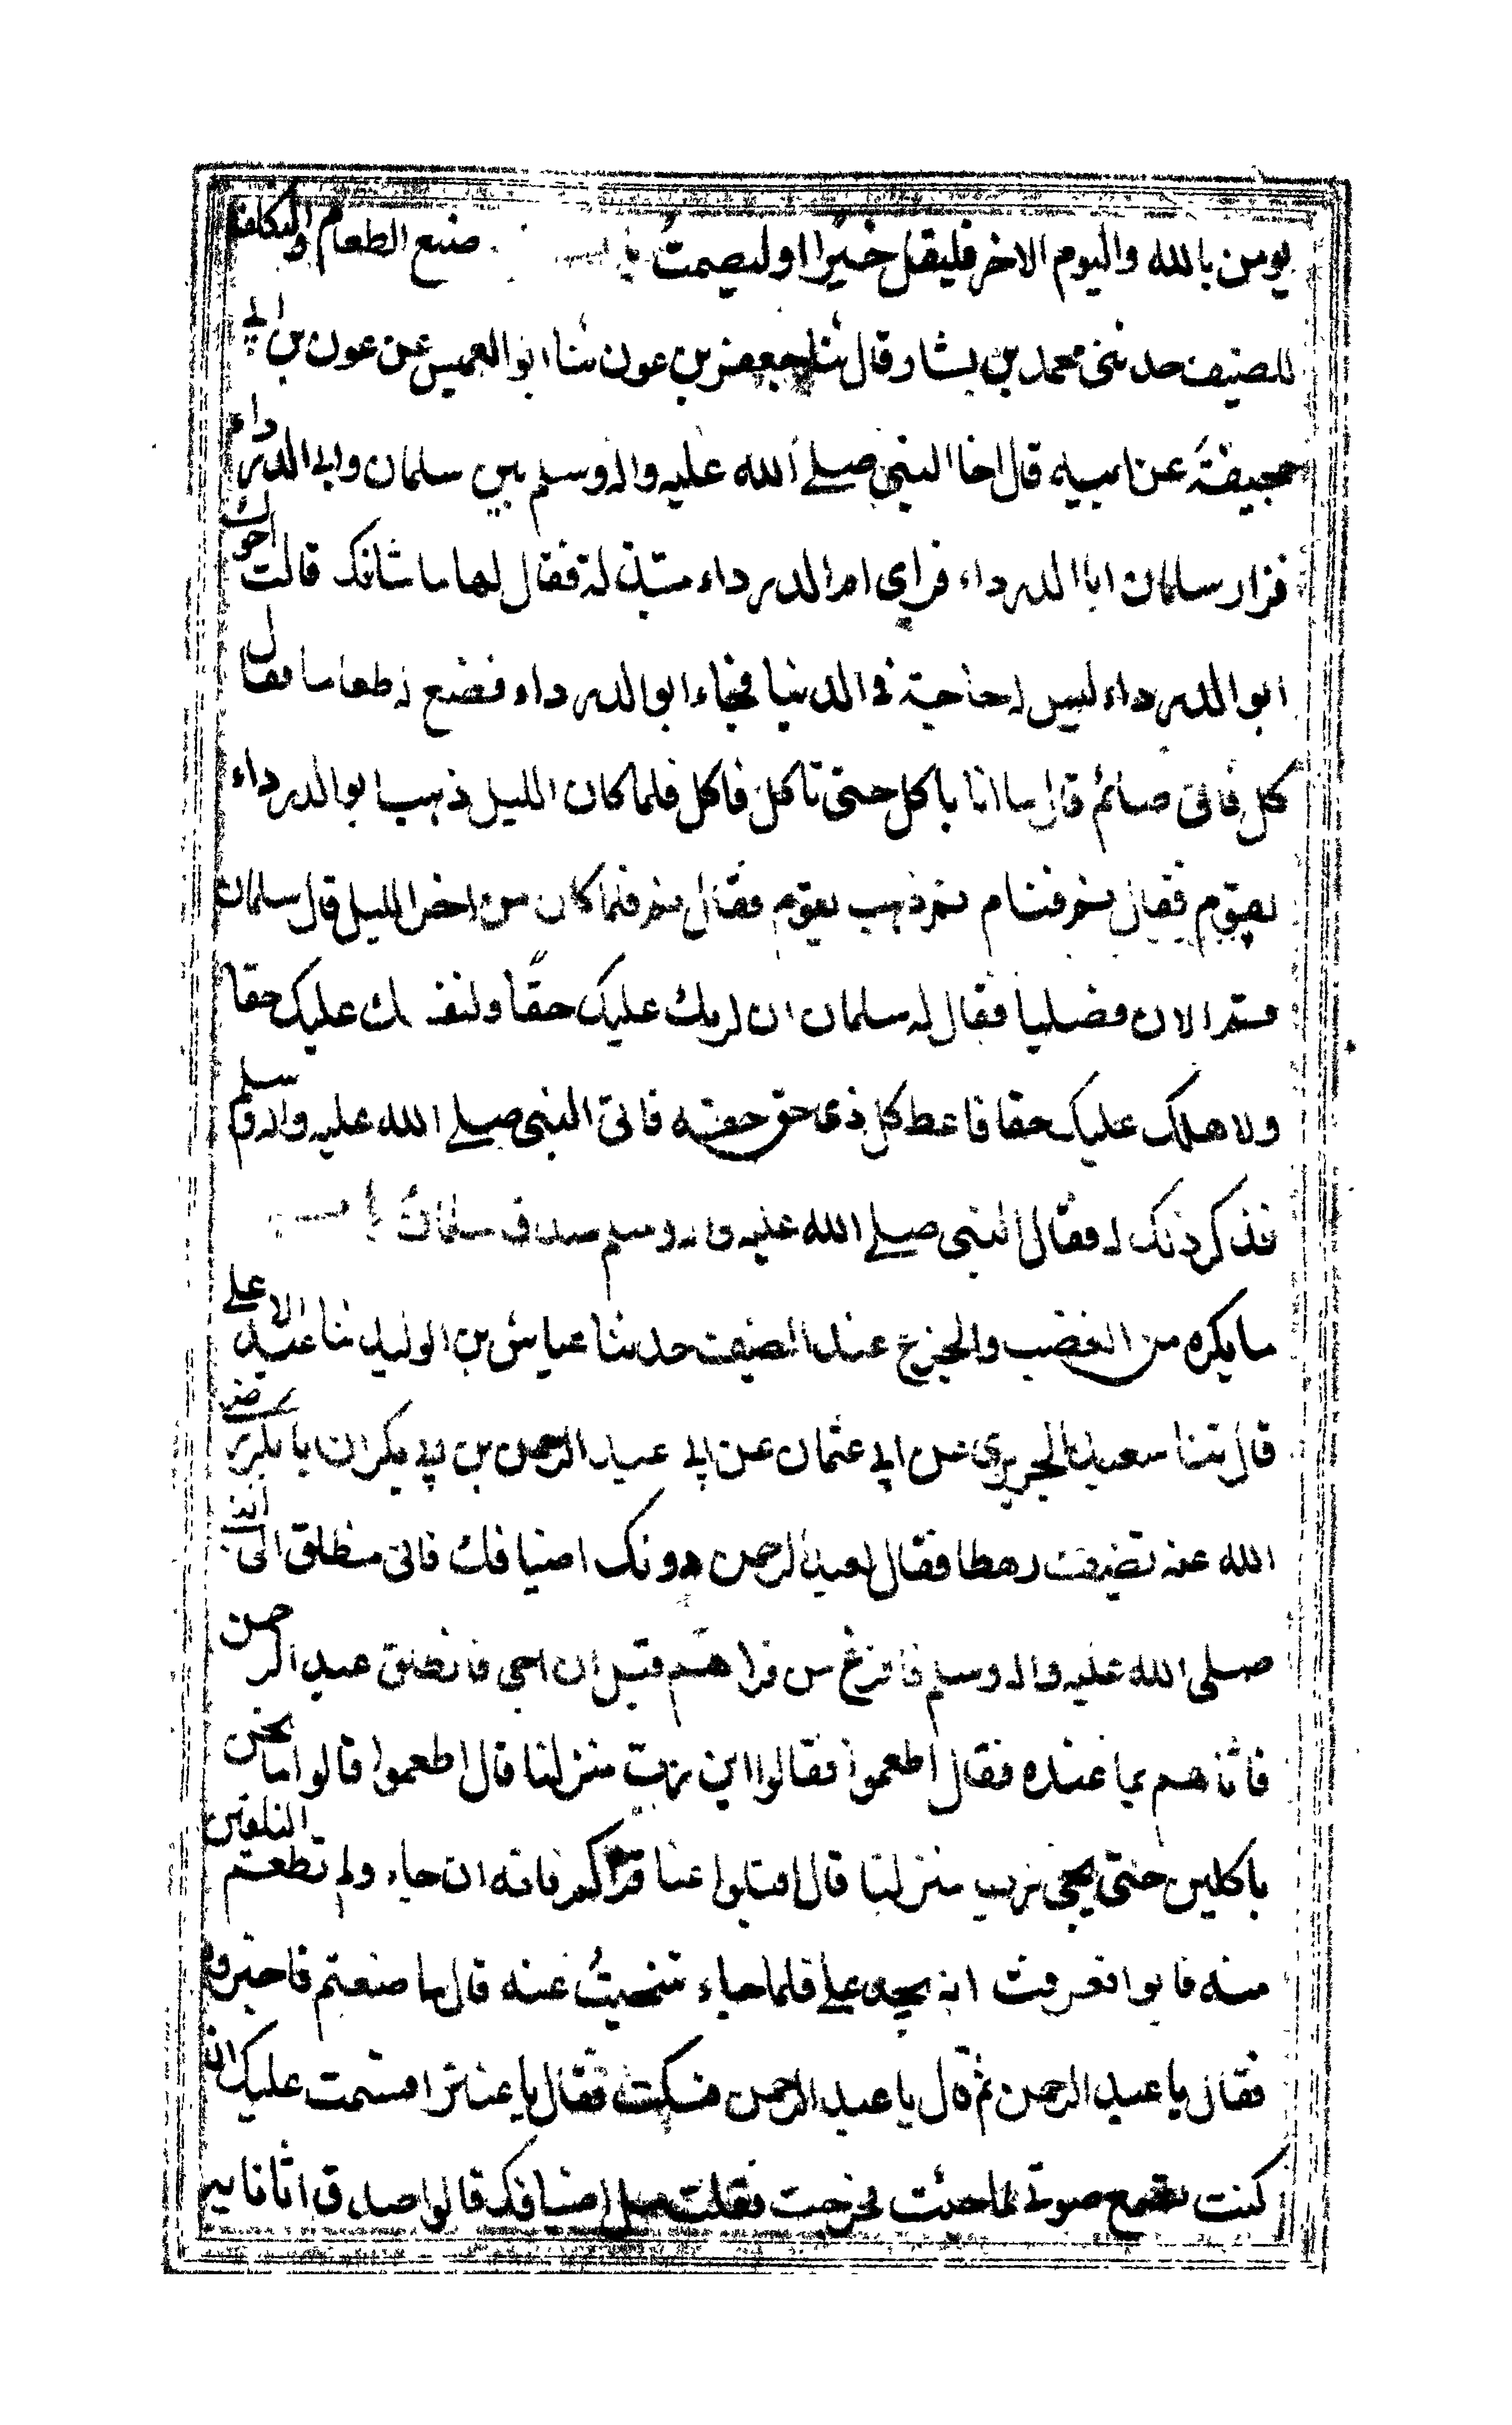 يومن بالله واليوم الاخر فليقل خيرا او ليصمت صنع الطعام والتكلف
للضيف حدثني محمد بن بشار قال ثنا جعفر بن عون ثنا ابو العميس عن عون بن ابي
جحيفة عن ابيه قال اخا النبي صلے الله عليه واله وسلم بين سلمان وابي الدرداء
فزار سلمان ابا الدرداء فراي ام الدرداء متبذلة فقال لها ما شانك قالت اخوك
ابو الدرداء ليس له حاجة في الدنيا فجاء ابو الدرداء فضع له طعاما فقال
كل فاني صائم قال ما انا باكل حتى تاكل فاكل فلما كان الليل ذهب ابو الدرداء
يقوم فقال نم فنام ثم ذهب يقوم فقال نم فلما كان من اخر الليل قال سلمان
قم الان فصليا فقال له سلمان ان لربك عليك حقا ولنفسك عليك حقا
ولاهلك عليك حقا فاعط كل ذي حق حقه فاتي النبي صلے الله عليه واله وسلم
فذكر ذلك له فقال النبي صلے الله عليه واله وسلم صدق سلمان
ما يكره من الغضب والجزع عند الضيف حدثنا عياش بن الوليد ثنا عبد الاعلے
قال ثنا سعيد الجريري عن ابي عثمان عن ابي عبد الرحمن بن ابي بكر ان ابا بكر رضي
الله عنه تضيف رهطا فقال لعبد الرحمن دونك اضيافك فاني منطلق الى النبي
صلى الله عليه واله وسلم فافرغ من قراهم قبل ان اجي فانطلق عبد الرحمن
فاتاهم بما عنده فقال اطعموا فقالوا اين رب منزلنا قال اطعموا قالوا ما نحن
باكلين حتى يجي رب منزلنا قال اقبلوا عنا قراكم فانه ان جاء ولم تطعموا لنلقين
منه فابوا فعرفت انه يجد علي فلما جاء تنحيت عنه قال ما صنعتم فاخبروه
فقال يا عبد الرحمن ثم قال يا عبد الرحمن فسكت فقال يا غنثر اقسمت عليك ان
كنت تسمع صوتي لما جئت فخرجت فقلت سل اضيافك قالوا صدق اتانا به